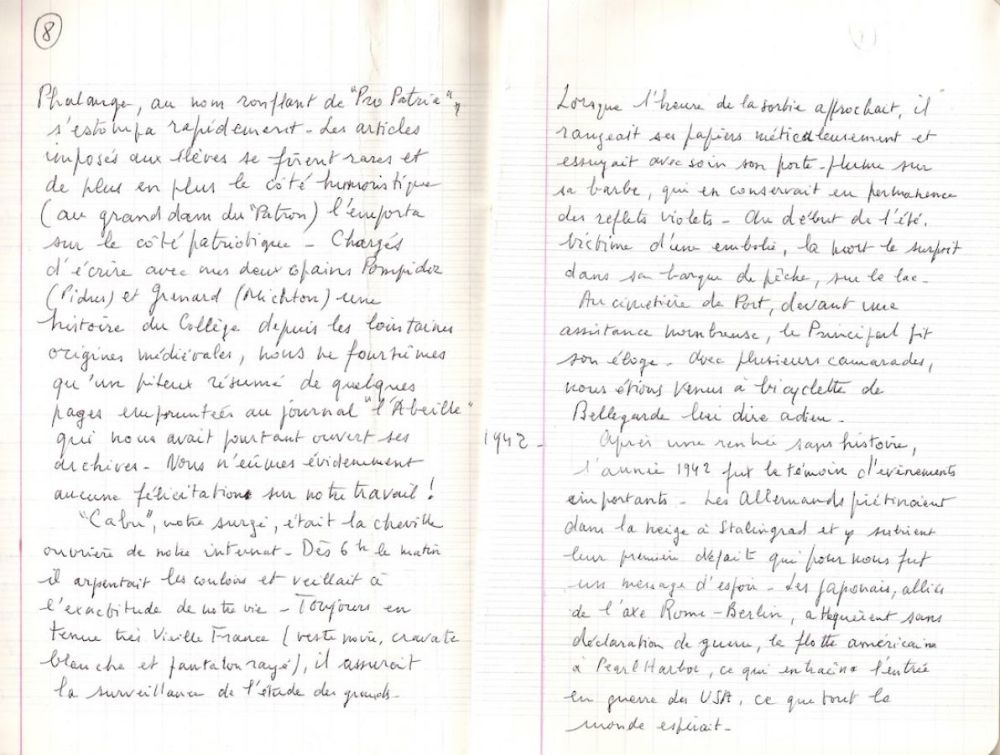 8
Phalange, au nom ronflant de "Pro Patria",
s'estompa rapidement - Les articles
imposés aux élèves se firent rares et
de plus en plus le côté humoristique
(au grand dam du "Patron) l'emporta
sur le côté patriotique - Chargés
d'écrire avec mes deux copains Pompidor
(Pidus) et Grenard (Michton) une
histoire du Collège depuis les lointaines
origines médiévales, nous ne fournîmes
qu'un piteux résumé de quelques
pages empruntées au journal "l'Abeille"
qui nous avait pourtant ouvert ses
archives - Nous n'eûmes évidemment
aucune félicitation sur notre travail !
"Cabu", notre surgé, était la cheville
ouvrière de notre internat - Dès 6h le matin
il arpentait les couloirs et veillait à
l'exactitude de notre vie - Toujours en
tenue très Vieille France (veste noire, cravate
blanche et pantalon rayé), il assurait
la surveillance de l'étude des grands -
Lorsque l'heure de la sortie approchait, il
rangeait ses papiers méticuleusement et
essuyait avec soin son porte-plume sur
sa barbe, qui en conservait en permanence
des reflets violets - Au début de l'été,
victime d'une embolie, la mort le surprit
dans sa barque de pêche, sur le lac -
Au cimetière de Port, devant une
assistance nombreuse, le Principal fit
son éloge - Avec plusieurs camarades,
nous étions venus à bicyclette de
Bellegarde lui dire adieu -
1942 - Après une rentrée sans histoire,
l'année 1942 fut le témoin d'événements
importants - Les Allemands piétinaient
dans la neige à Stalingrad et y subirent
leur première défaite qui pour nous fut
un message d'espoir - Les Japonais, alliés
de l'axe Rome-Berlin, attaquèrent sans
déclaration de guerre, la flotte américaine
à Pearl Harbor, ce qui entraîna l'entrée
en guerre des USA, ce que tout le
monde espérait -